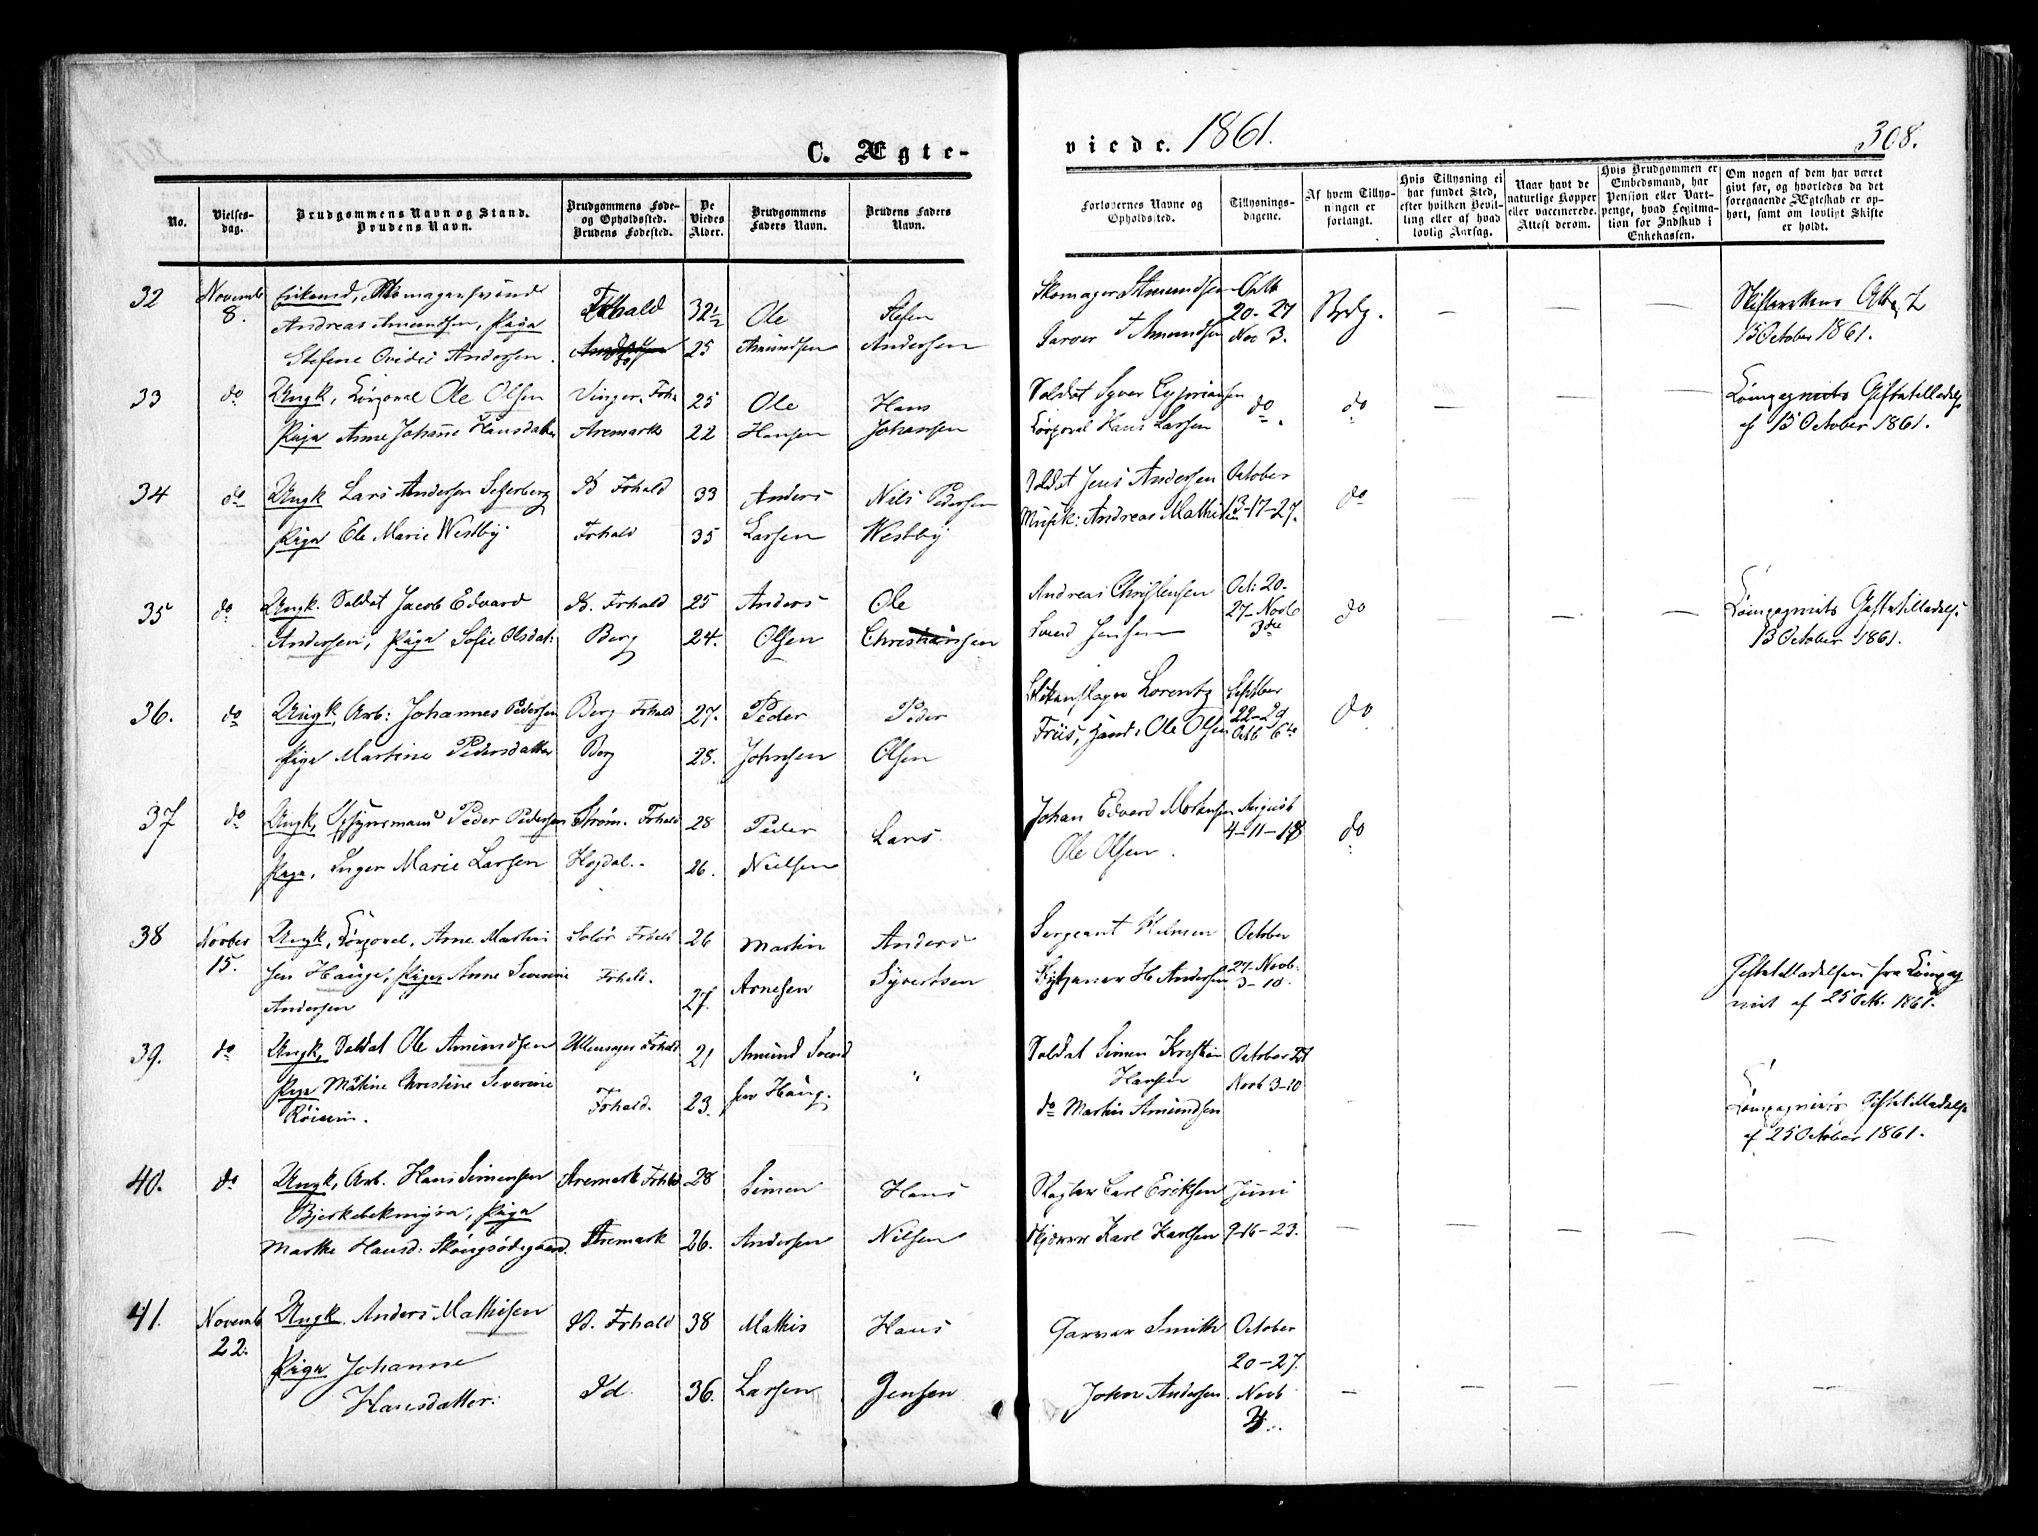 C. Ægte-
viede. 1861.
308.
No.
Vielses-
dag.
Brudgommens Navn og Stand.
Brudens Navn.
Brudgommens Føde-
og Opholdssted.
Brudens Fødested.
De
Viedes
Alder.
Brudgommens
Faders Navn.
Brudens Faders
Navn.
Forlovernes Navne og
Opholdssted.
Tillysnings-
dagene.
Af hvem Tillys-
ningen er
forlangt.
Hvis Tillysning ei
har fundet Sted,
efter hvilken Bevil-
ling eller af hvad
lovlig Aarsag.
Naar havt de
naturlige Kopper
eller vaccinerede.
Attest derom.
Hvis Brudgommen er
Embedsmand, har
Pension eller Vart-
penge, hvad Legitima-
tion for Indskud i
Enkekassen.
Om nogen af dem har været
givt før, og hvorledes da det
foregaaende Ægteskab er op-
hørt, samt om lovligt Skifte
er holdt.
32 Novemb Enkemd, Skomagersvend Frhald 32½ Ole Stefen Skomager Amundsen Octb Brdg. — — — —
8. Andreas Amundsen, Piga 25 Amundsen Andersen Garver T Amundsen 20-27 13 October 1861.
Stefene Andersen. Nov 3.
33 do Ungk, Corporal Ole Olsen Vinger. Frh. 25 Ole Hans Soldat Syver do. do — — — Compagniets Giftetilladelse
Piga Anne Johanne Hansdatter Aremark 22 Hansen Johansen Corporal Hans Larsen af 13 October 1861.
34 do Ungk Lars Andersen Id Frhald 33 Anders Nils Pedersen Soldat Jens Andersen October do
Piga Ele Marie Westby Frhald 35 Larsen Westby Musik: Andreas Mathisen 13-17-27.
35 do Ungk. Soldat Jacob Edvard Id. Frhald 25 Anders Ole Andreas Christensen Oct: 20- do Compagniets Giftetilladelse
Andersen, Piga Sofie Olsdat: Berg 24. Olsen Christiansen Svend Jensen 27-Novb 3die 13 October 1861.
36. do Ungk, Arb: Johannes Pedersen Berg Frhald 27. Peder Peder Lorentz Septber do
Piga Martine Pedersdatter Berg 28. Johnsen Olsen Friis, Ole Olsen 22-29 Octb 6te
37 do Ungk, Opsynsmand Peder Pedersen Strøm. Frhald 28 Peder Lars Johan Edvard Mortensen August do
Piga, Inger Marie Larsen Hogdal.- 26. Nielsen Ole Olsen. 4-11-18
38 Novber Ungk, Corporal, Arne Martin Solør Frhald 26 Martin Anders Sergeant October
15. sen Hauge, Piga Anne Severine Frhald. Arnesen Syvertsen H. Andersen 27-Novb. Giftetilladelsen fra Compag
Andersen 27. 3-10. niet af 25 Octb. 1861.
39. do Ungk, Soldat Ole Amundsen Ullensager Frhald 21 Amund Svend " Soldat Simen October 27
Piga Christine Severine Frhald. 23. sen Haug. Hansen Novb 3-10 Compagniets Giftetilladelse
do Martin Amundsen af 25 October 1861.
40. do Ungk, Arb. Hans Simensen Aremark Frhald 28 Simen Hans Carl Eriksen Juni
Bjerkebekmyra, Piga
Marthe Hansd: Skougsødegaard. Aremark 26. Andersen Nilsen Karl Karlsen 9-16-23. — — — — —
41. Novemb Ungk. Anders Mathisen Id. Frhald 38 Mathis Hans Garver Smith October
22. Piga Johanne 20-27.
Hansdatter. Id. 36. Larsen Jensen John Andersen. Novb — — — — —
3.